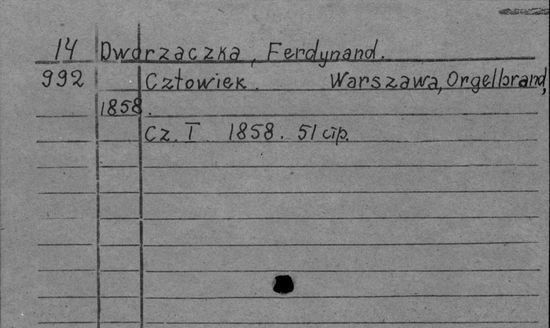 14 Dworzaczka, Ferdynand.
992 Człowiek. Warszawa, Orgelbrand,
1858.
Cz. I 1858. 51 стр.